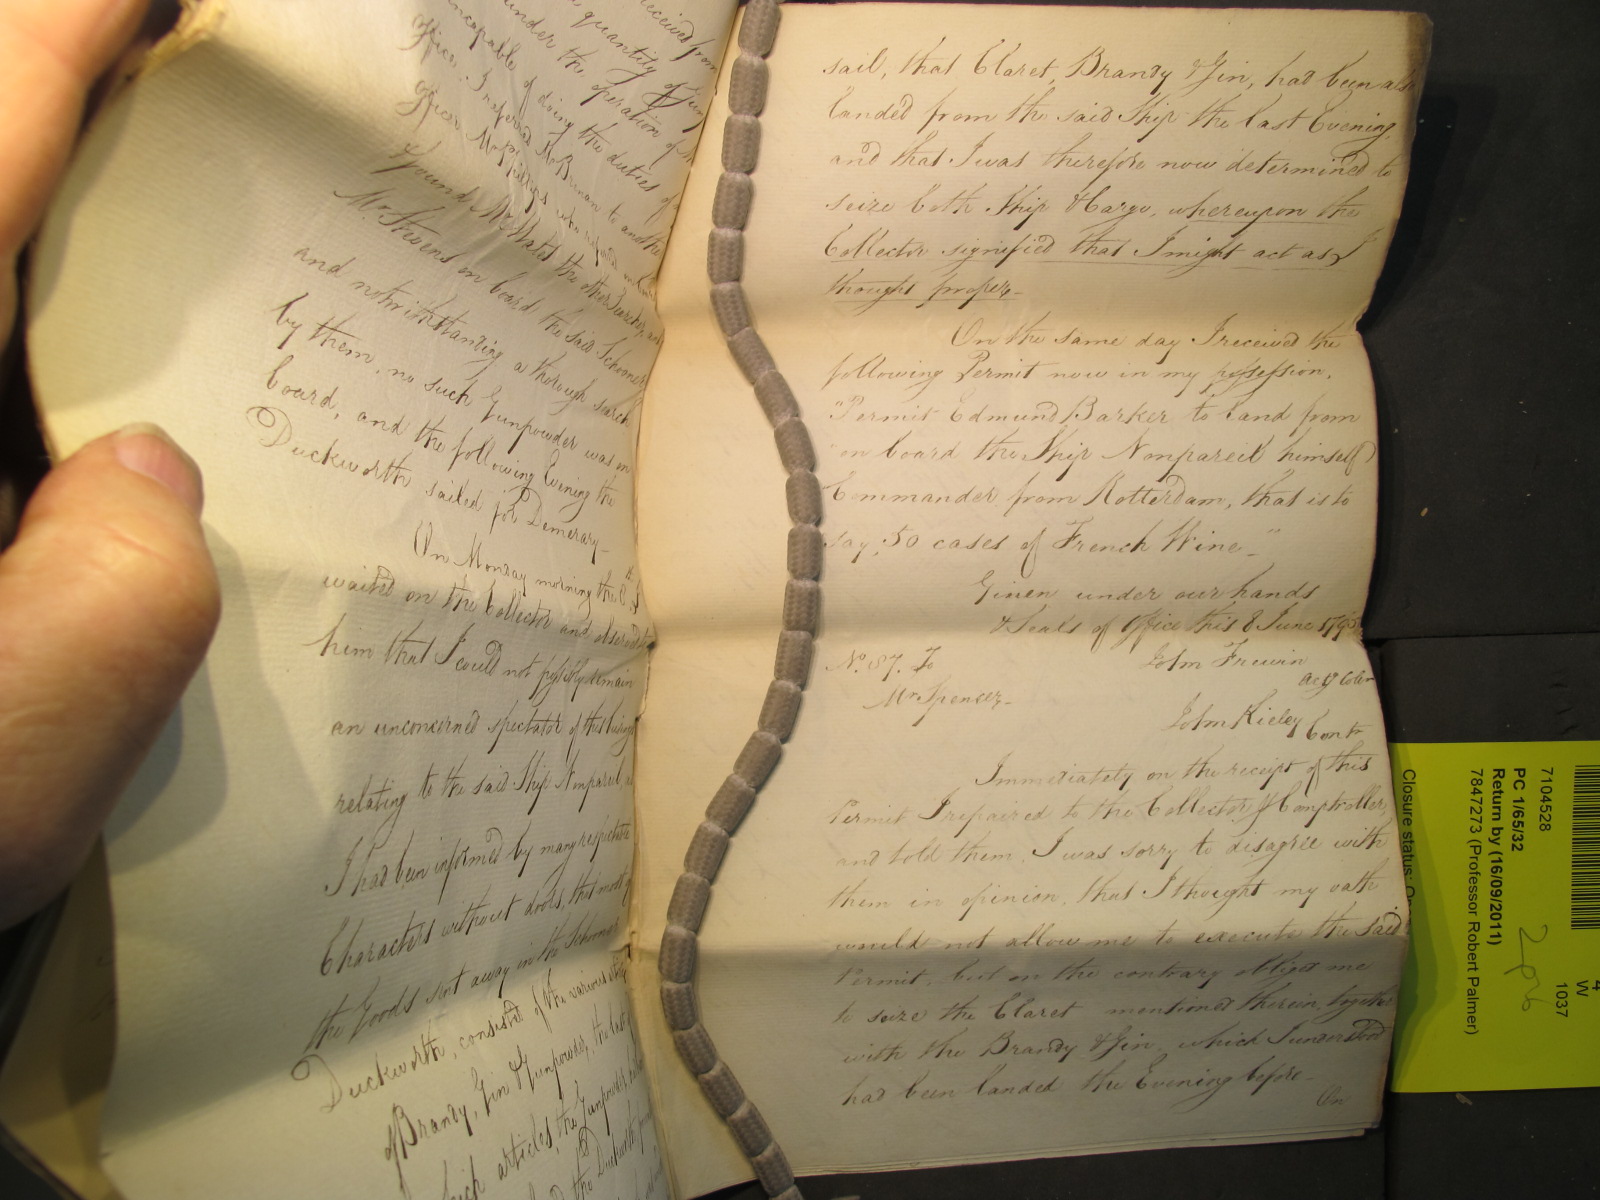 received from
quantity of Gun
under the operation of
incapable of doing the duties of
Office. I referred Mr. Brenan to another
Officer Mr. Phillips who
found Mr. Wates the other Searcher, and
Mr. Stevens on board the said Schooner
and notwithstanding a thorough search
by them, no such Gunpowder was on
board, and the following Evening the
Duckworth sailed for Demerary_
On Monday morning the 8th I
waited on the Collector and observed to
him that I could not possibly remain
an unconcerned spectator of this business
relating to the said Ship Nonpareil, as
I had been informed by many respectable
Characters without doors, that most of
the Goods sent away in the Schooner
Duckworth, consisted of the various
of Brandy, Gin & Gunpowder, the last of
which articles, the Gunpowder,
the Duckworth
said, that Claret, Brandy & Gin, had been also
landed from the said Ship the last Evening,
and that I was therefore now determined to
seize both Ship & Cargo, whereupon the
Collector signified that I might act as I
thought proper_
On the same day I received the
following Permit now in my possession.
"Permit Edmund Barker to land from
"on board the Ship Nonpareil himself
Commander from Rotterdam, that is to
say, 50 cases of French Wine_"
Given under our hands
& Seals of Office this 8 June 1795
No. 87. To
John Frewin
acg Coller
Mr. Spencer_
John Kieley Contr
Immediately on the receipt of this
Permit I repaired to the Collector & Comptroller,
and told them, I was sorry to disagree with
them in opinion, that I thought my oath
would not allow me to execute the said
Permit, but on the contrary obliged me
to seize the Claret mentioned therein, together
with the Brandy & Gin, which I understood
had been landed the Evening before_
On
7104528
PC 1/65/32
Return by (16/09/2011)
7847273 (Professor Robert Palmer)
Closure status: O
4
W
1037